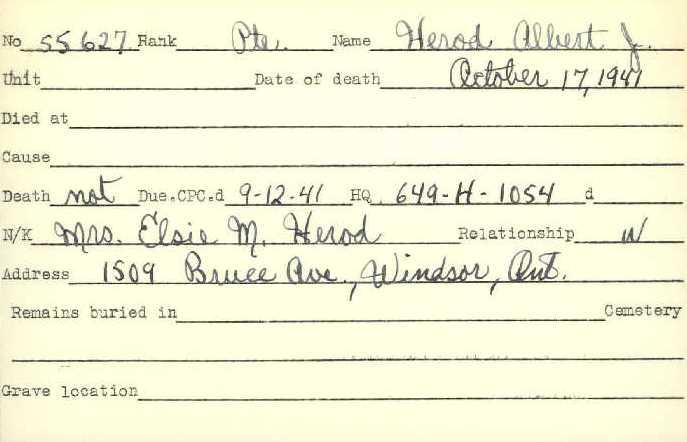 No 55627 Rank Pte. Name Herod Albert J.
Unit Date of death October 17, 1941
Died at
Cause
Death not Due.CPC.d 9-12-41 HQ 649-H-1054 d
N/K Mrs. Elsie M. Herod Relationship W
Address 1509 Bruce Ave., Windsor, Ont.
Remains buried in Cemetery
Grave location